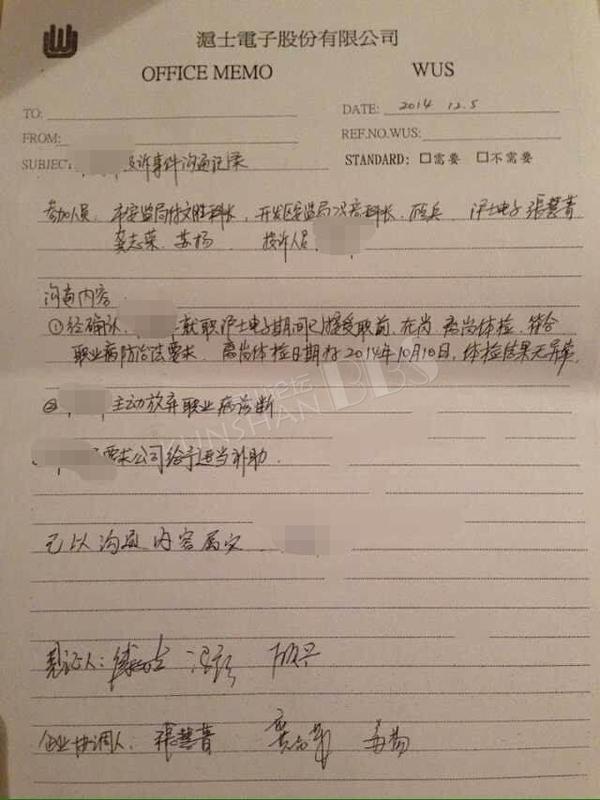 滬士電子股份有限公司
OFFICE MEMO WUS
TO:
DATE: 2014 12.5
FROM:
REF.NO.WUS:
SUBJECT 投诉事件沟通记录
STANDARD: □需要 □不需要
参加人员 市安监局付文胜科长、开发区安监局冯 科长、 沪士电子張慧菁
龚志荣、苏杨 投诉人员
沟通内容
①经确认, 就职沪士电子期间已接受职前、在岗、离岗体检、符合
职业病防治法要求、离岗体检日期为2014年10月10日,体检结果无异常
② 主动放弃职业病诊断
要求公司给予适当补助
KUNSHAN BBS
已以沟通内容属实
见证人:
企业协调人: 張慧菁 龚志荣 苏杨